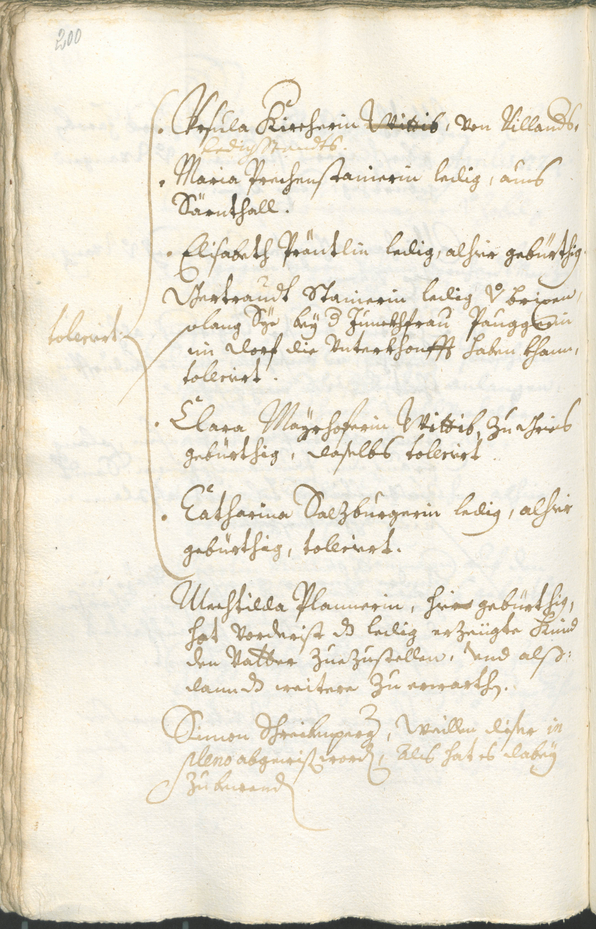 200
Ursula Kircherin Wittib, von Villands,
ledig standts.
Maria Prechenstainerin ledig, aus
Särnthall.
Elisabeth Präntlin ledig, alhier gebürthig.
Gertraudt Stainerin ledig v: brixen,
solang Sye bey d Junckhfrau Paugg̈erin
im Dorf die Unterkhonfft haben khann,
tolleriert.
tolleriert.
Clara Mayrhoferin Wittib, zu Gries
gebürthig, daselbs tolleriert
Catharina Salzburgerin ledig, alhier
gebürthig, tolleriert.
Mechtilda Plannerin, hier gebürthig,
hat vorderist ds ledig erzeugte Kind
den Vatter zuezustellen, und alß:
dann ds weitere zu erwarthen.
Simon Schreibmperg, weillen diser in
pleno abgewist worden, Als hat es dabey
zu bewenden